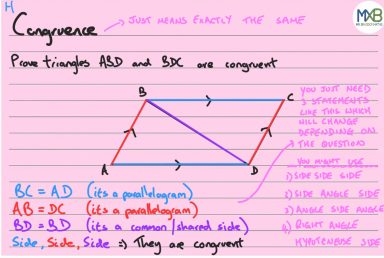 H
Congruence
JUST MEANS EXACTLY THE SAME
MXB
Prove triangles ABD and BDC are congruent
B
C
A
D
YOU JUST NEED
3 STATEMENTS
LIKE THIS WHICH
WILL CHANGE
DEPENDING ON
THE QUESTION
YOU MIGHT USE
1) SIDE SIDE SIDE
2) SIDE ANGLE SIDE
3) ANGLE SIDE ANGLE
4) RIGHT ANGLE
HYPOTENUSE SIDE
BC = AD (its a parallelogram)
AB = DC (its a parallelogram)
BD = BD (its a common/shared side)
Side, Side, Side => They are congruent